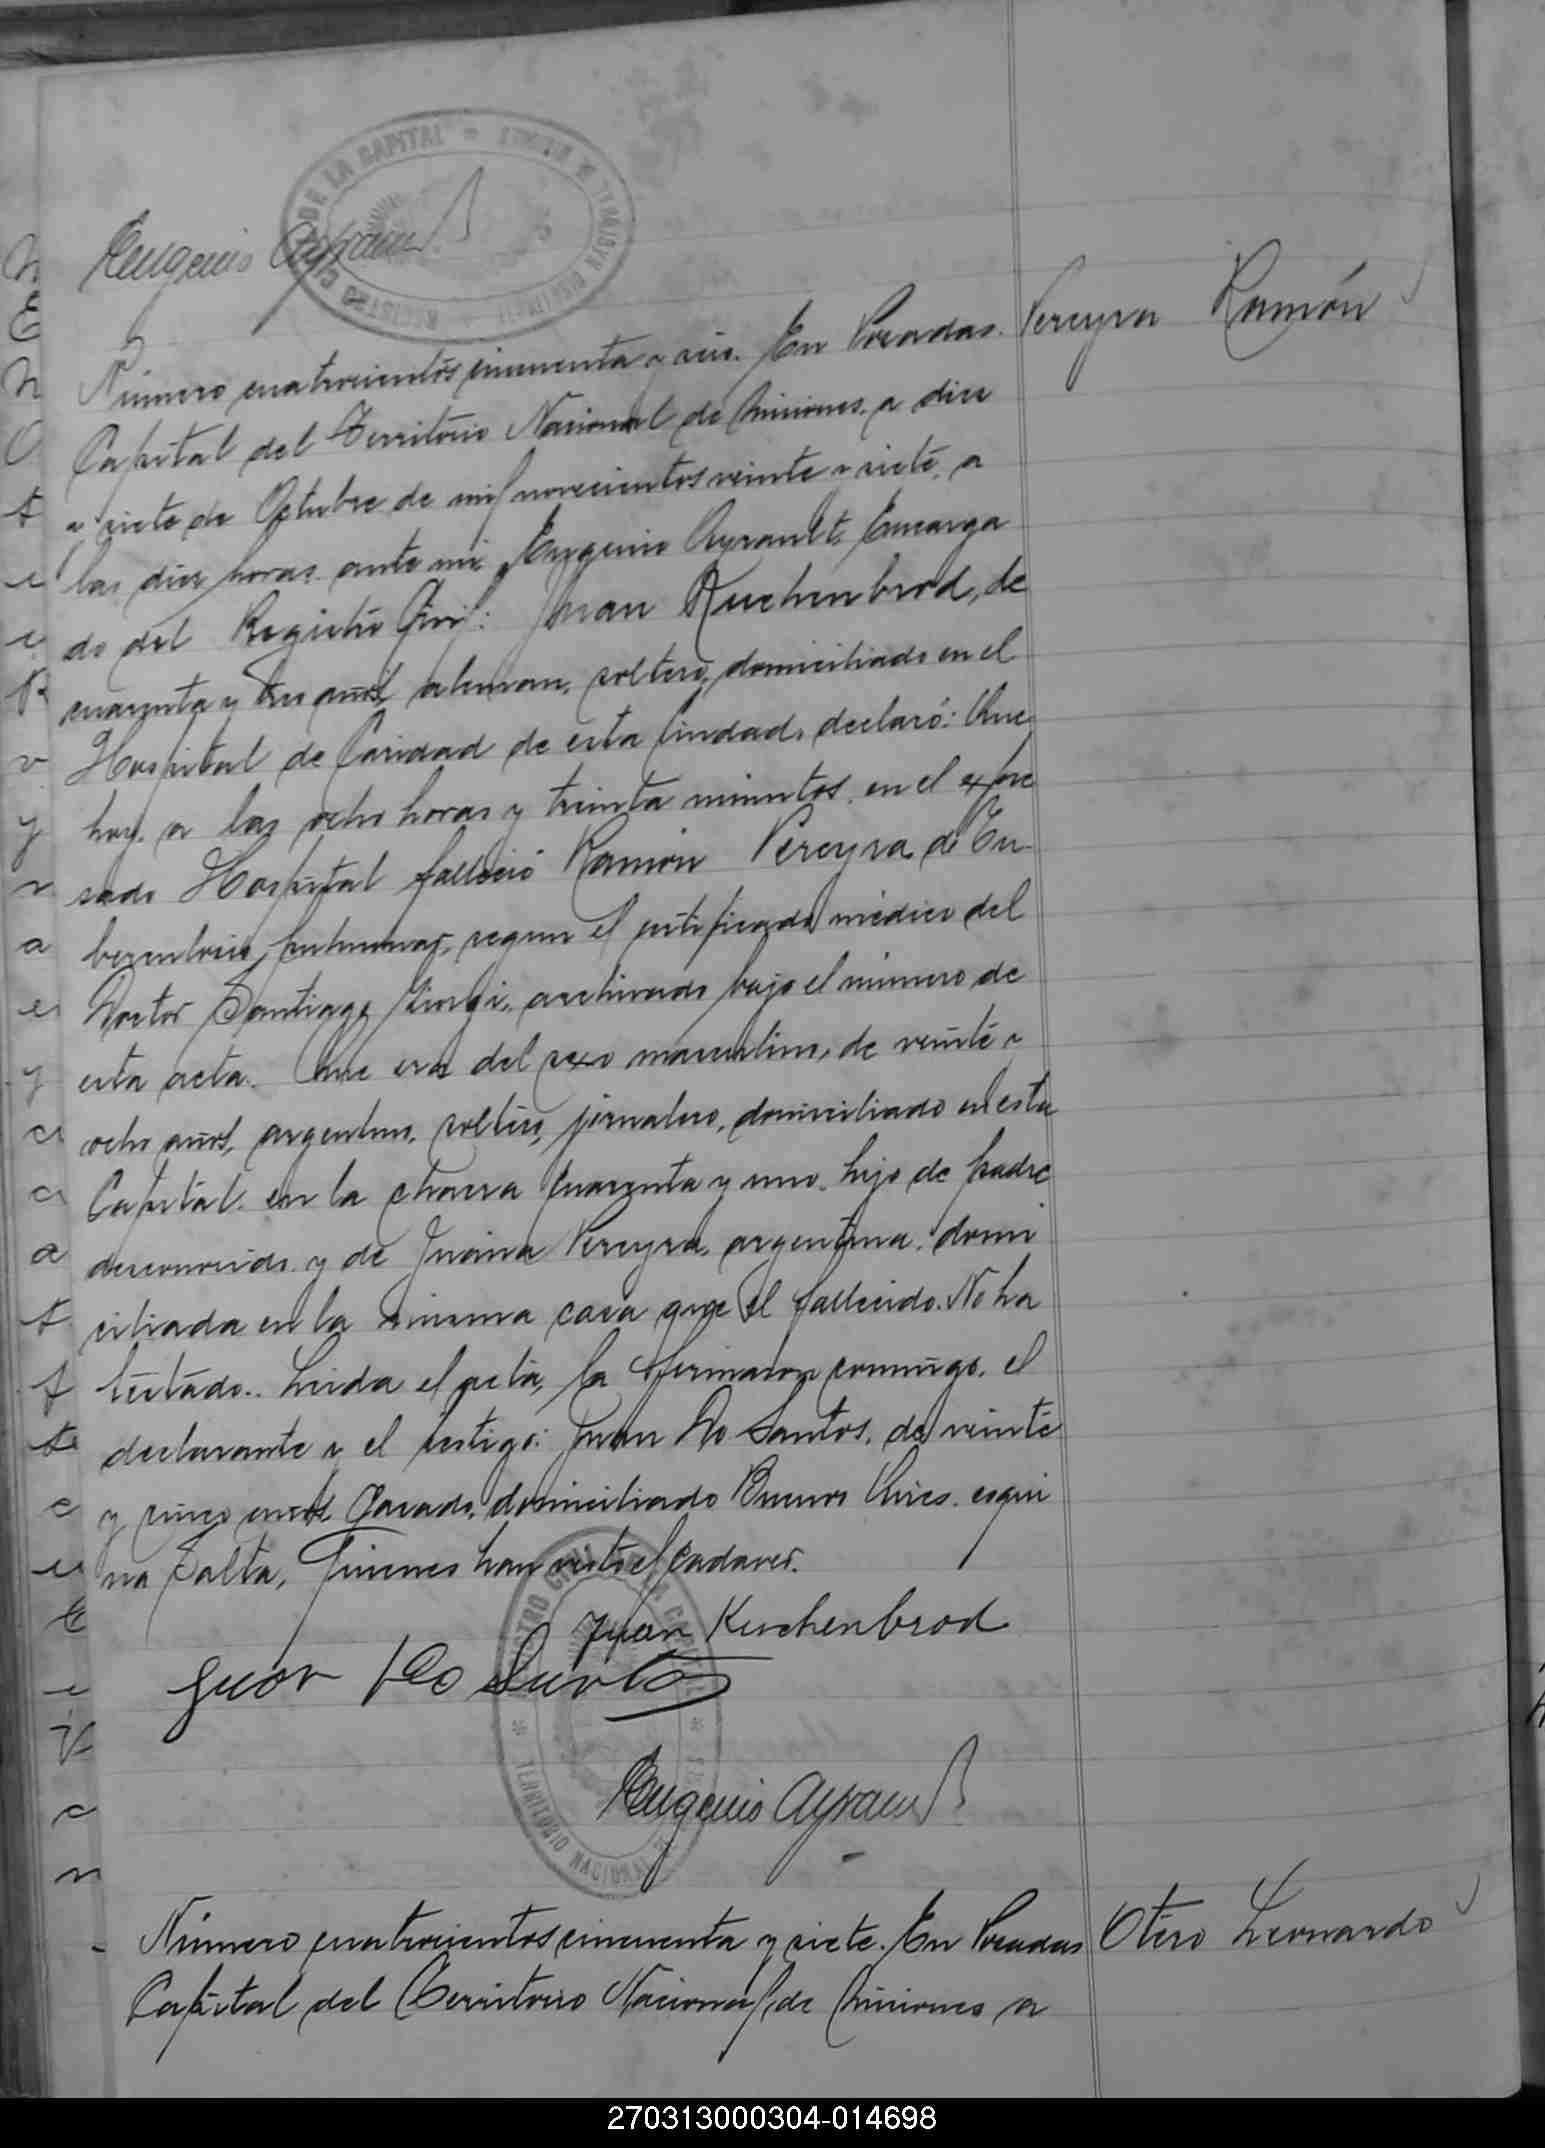 DE LA CAPITAL
REGISTRO CIVIL
Eugenio Ayrault
Número cuatrocientos cincuenta y seis. En Posadas. Pereyra Ramón
Capital del Territorio Nacional de Misiones, a diez
y siete de Octubre de mil novecientos veinte y siete, a
las diez horas ante mi Eugenio Ayrault, Encarga
do del Registro Civil: Juan Kuchenbrod, de
cuarenta y tres años, aleman, soltero, domiciliado en el
Hospital de Caridad de esta Ciudad, declaró: Que
hoy a las ocho horas y treinta minutos, en el expre
sado Hospital falleció Ramón Pereyra, de Tu-
berculosis pulmonar, segun el certificado médico del
Doctor Santiago Giorgi, archivado bajo el número de
esta acta. Que era del sexo masculino, de veinte y
ocho años, argentino, soltero, jornalero, domiciliado en esta
Capital, en la chacra cuarenta y uno, hijo de padre
desconocido y de Juana Pereyra, argentina, domi
ciliada en la misma casa que el fallecido. No ha
testado. Leida el acta, la firmaron conmigo, el
declarante y el testigo: Juan Do Santos, de veinte
y cinco años, Casado, domiciliado Buenos Aires esqui
na Salta, Quienes han visto el cadaver.
Juan Kuchenbrod
Juan Do Santos
REGISTRO CIVIL DE LA CAPITAL
TERRITORIO NACIONAL
Eugenio Ayrault
Número cuatrocientos cincuenta y siete. En Posadas Otero Leonardo
Capital del Territorio Nacional de Misiones a
270313000304-014698